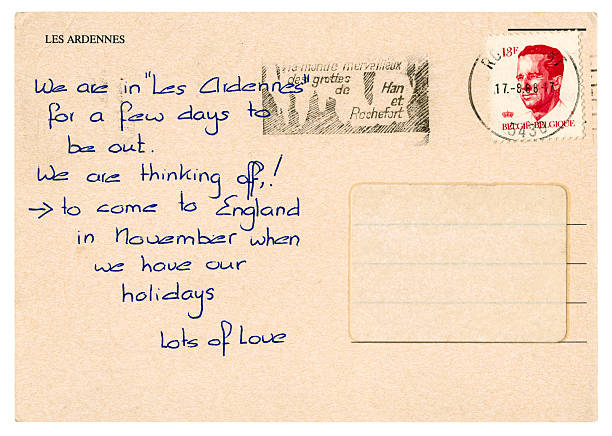 LES ARDENNES
We are in "Les Ardennes"
for a few days to
be out.
We are thinking off,!
→ to come to England
in November when
we have our
holidays
Lots of Love
monde merveilleux
des grottes
de Han
et
Rochefort
13F
17.-8.88.-17
BELGIË-BELGIQUE
5430